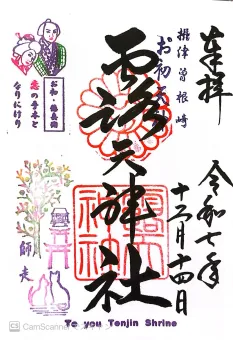 奉拝
摂津曽根崎
お初天神
露天神社
令和七年
十二月十四日
お初・徳兵衛
恋の手本と
なりにけり
師走
Tsu yu Tenjin Shrine
CS CamScanner